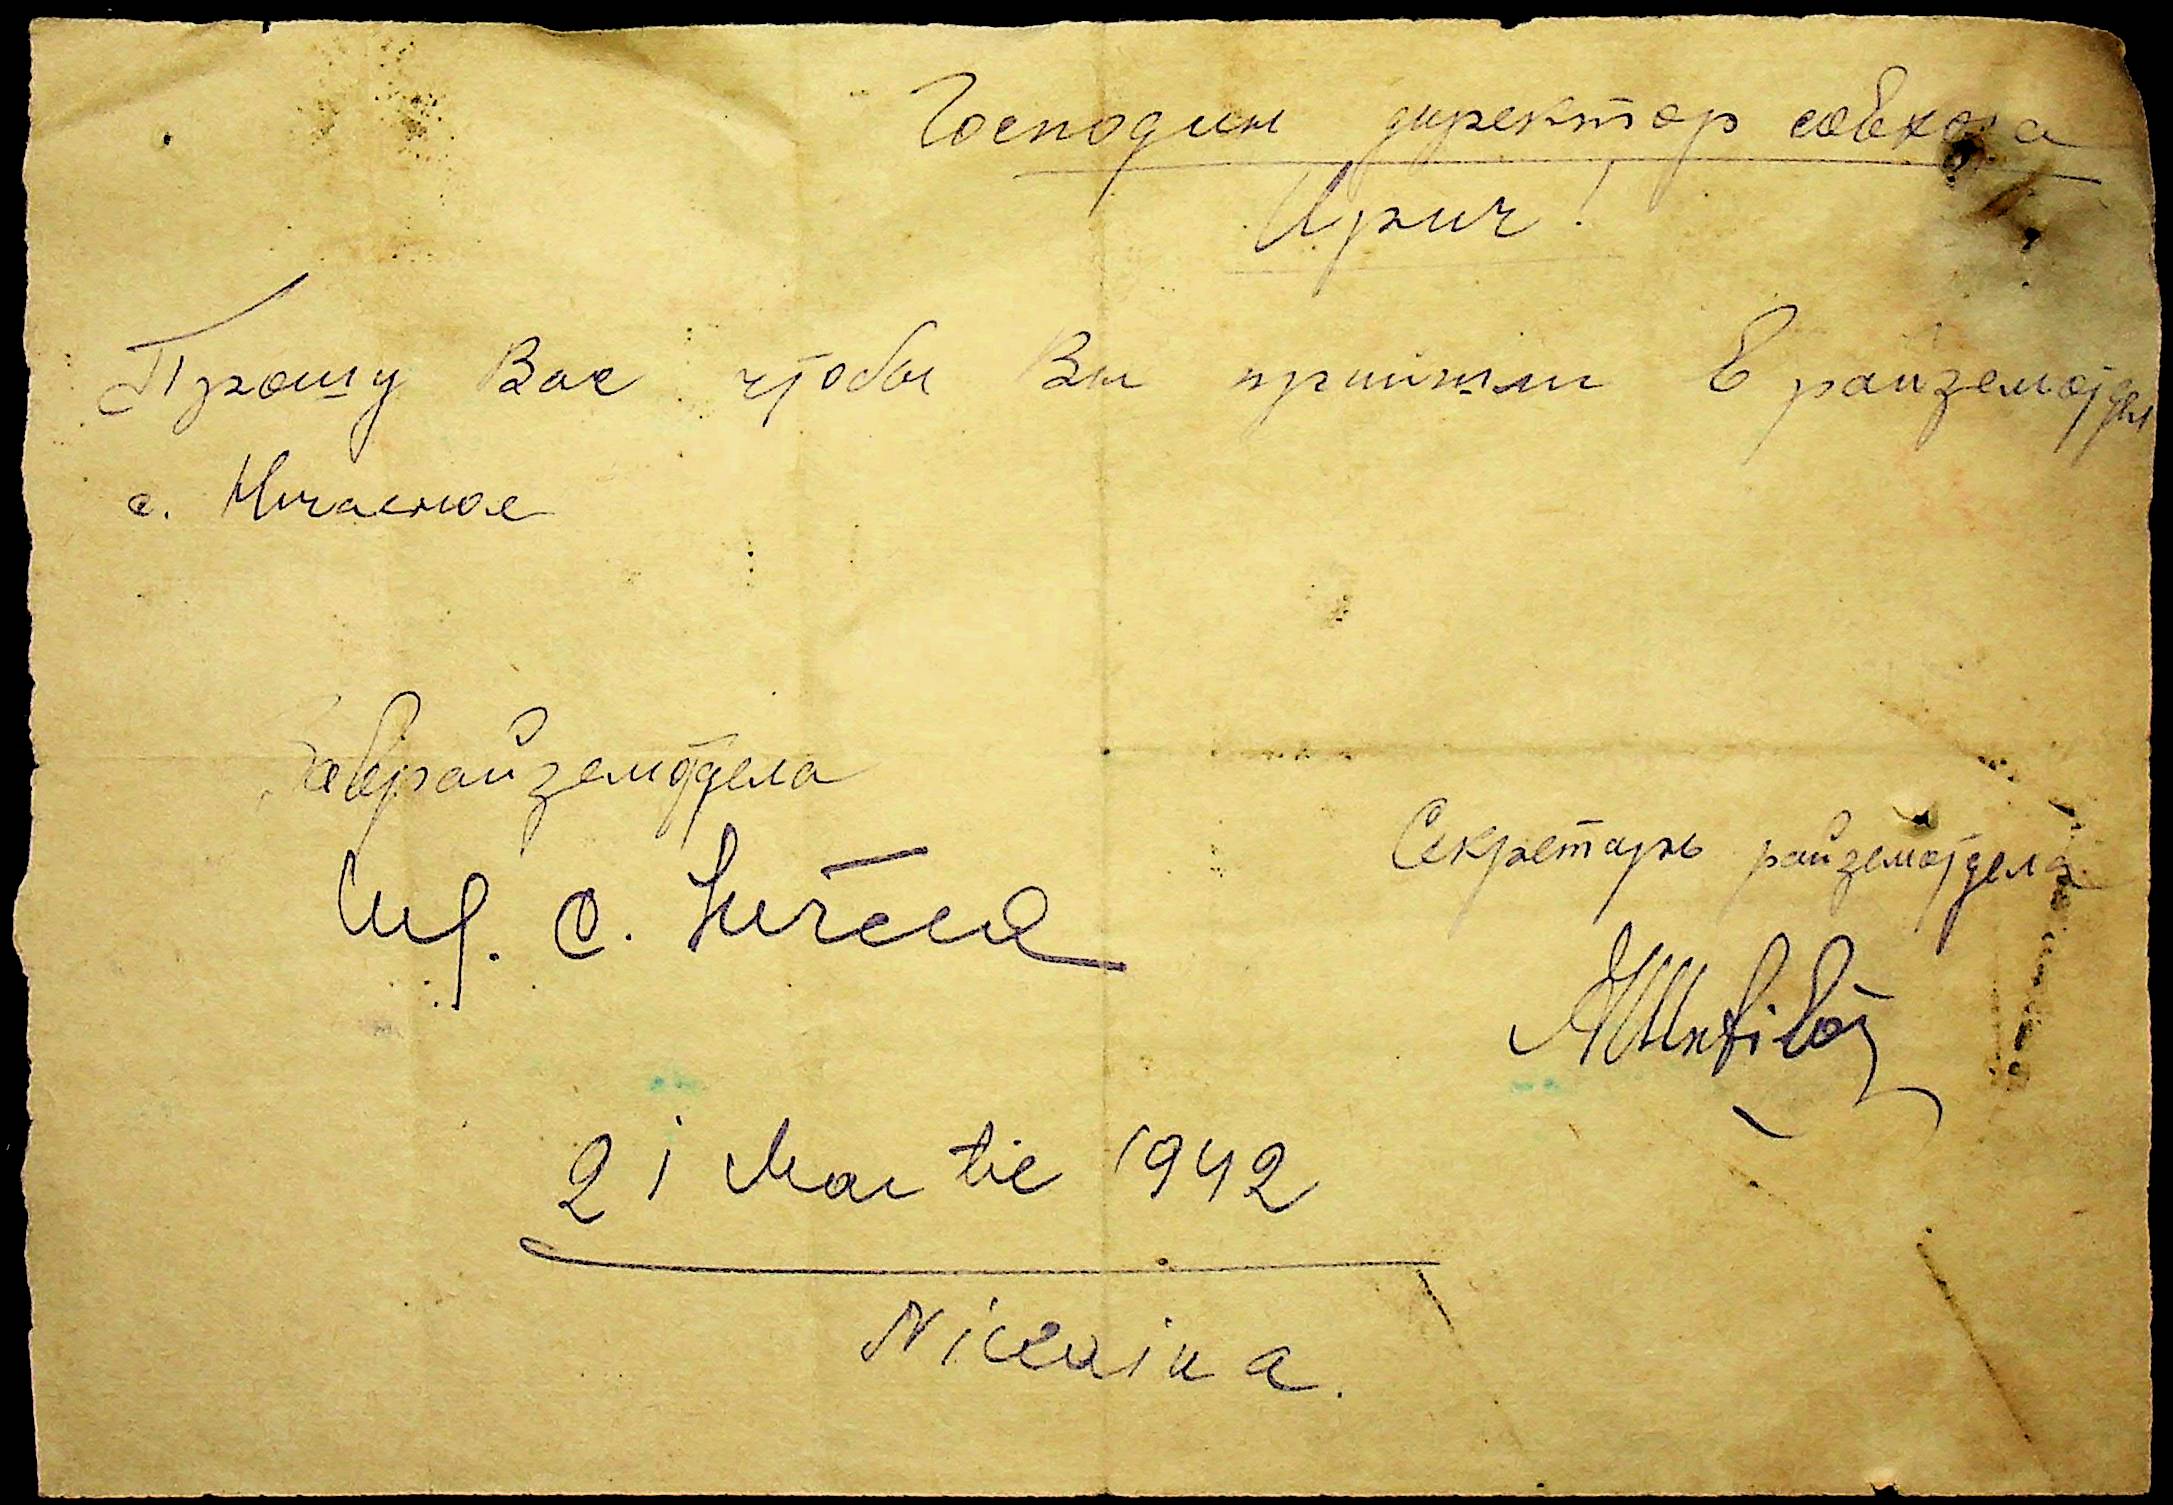 Господин директор совхоза
Ирич!
Прошу Вас чтобы Вы прийшли в райземотдел
с.
Заврайземотдела
С.
Секретарь райземотдела
21 Martie 1942